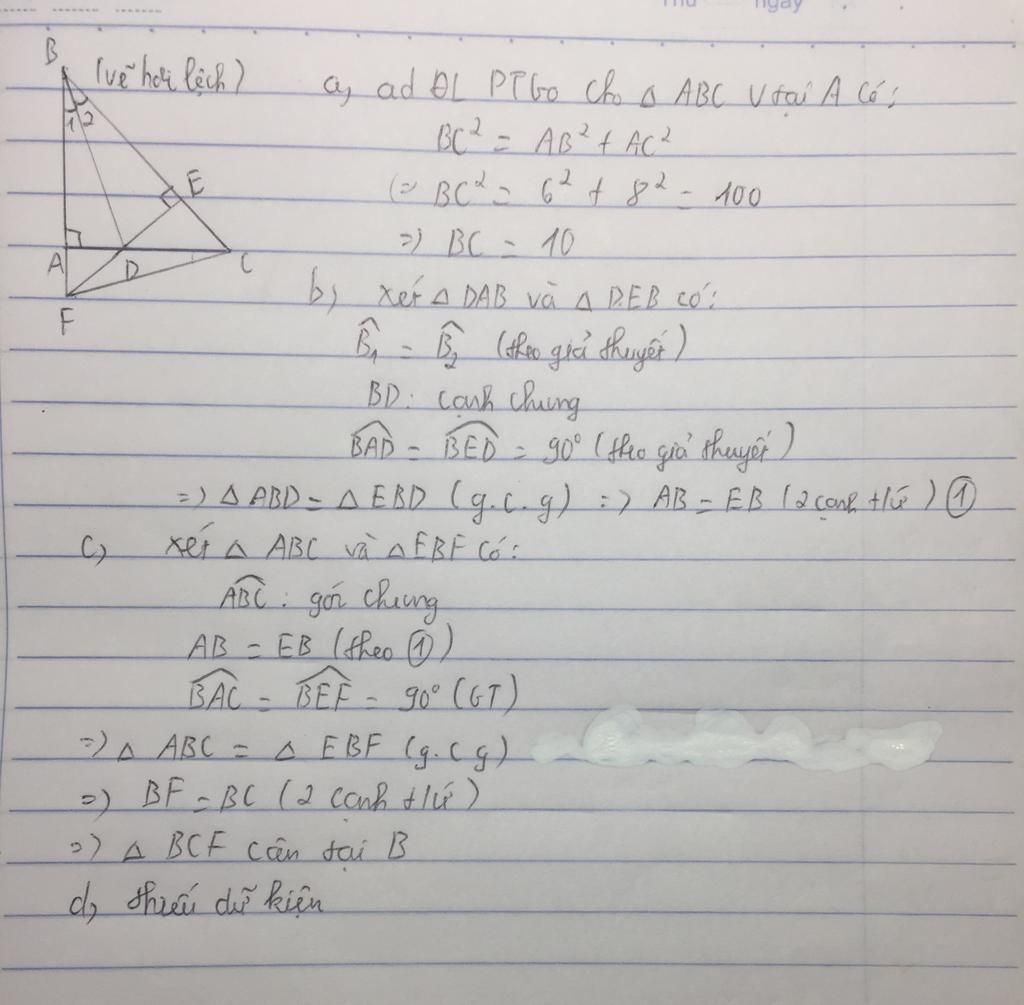 Thứ ngày
B (vẽ hơi lệch)
1 2
E
A D C
F
a, ad ĐL PTGo cho △ ABC V tại A có:
BC² = AB² + AC²
(=) BC² = 6² + 8² = 100
=) BC = 10
b) xét △ DAB và △ DEB có:
B̂₁ = B̂₂ (theo giả thuyết)
BD: cạnh chung
BAD = BED = 90° (theo giả thuyết)
=) △ ABD = △ EBD (g.c.g) =) AB = EB (2 cạnh t/ứ) ①
c, xét △ ABC và △ EBF có:
ABC: gói chung
AB = EB (theo ①)
BAC = BEF = 90° (GT)
=) △ ABC = △ EBF (g.c g)
=) BF = BC (2 cạnh t/ứ)
=) △ BCF cân tại B
d, thiếu dữ kiện